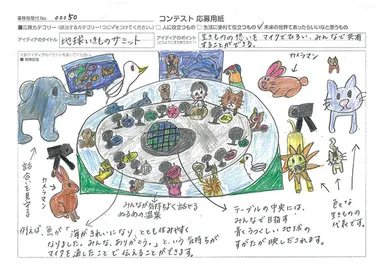 事務局受付No. 00050
コンテスト 応募用紙
応募カテゴリー
人に役立つもの
生活に便利で役立つもの
未来の世界であったらいいなと思うもの
アイディアのタイトル
地球いきものサミット
アイディアのポイント
生きものの想いをマイクでひろい、みんなで共有
することができる。
カメラマン
話合いを見守る
カメラマン
みんなが気持ちよく話せる
ぬるめの温泉
テーブルの中央には、
みんなで目指す
青くうつくしい地球の
すがたが映しだされます。
色々な
生きものの
代表です。
例えば、魚が「海がきれいになり、とても住みやすく
なりました。みんな、ありがとう。」という気持ちが
マイクを通したことで伝えることができます。